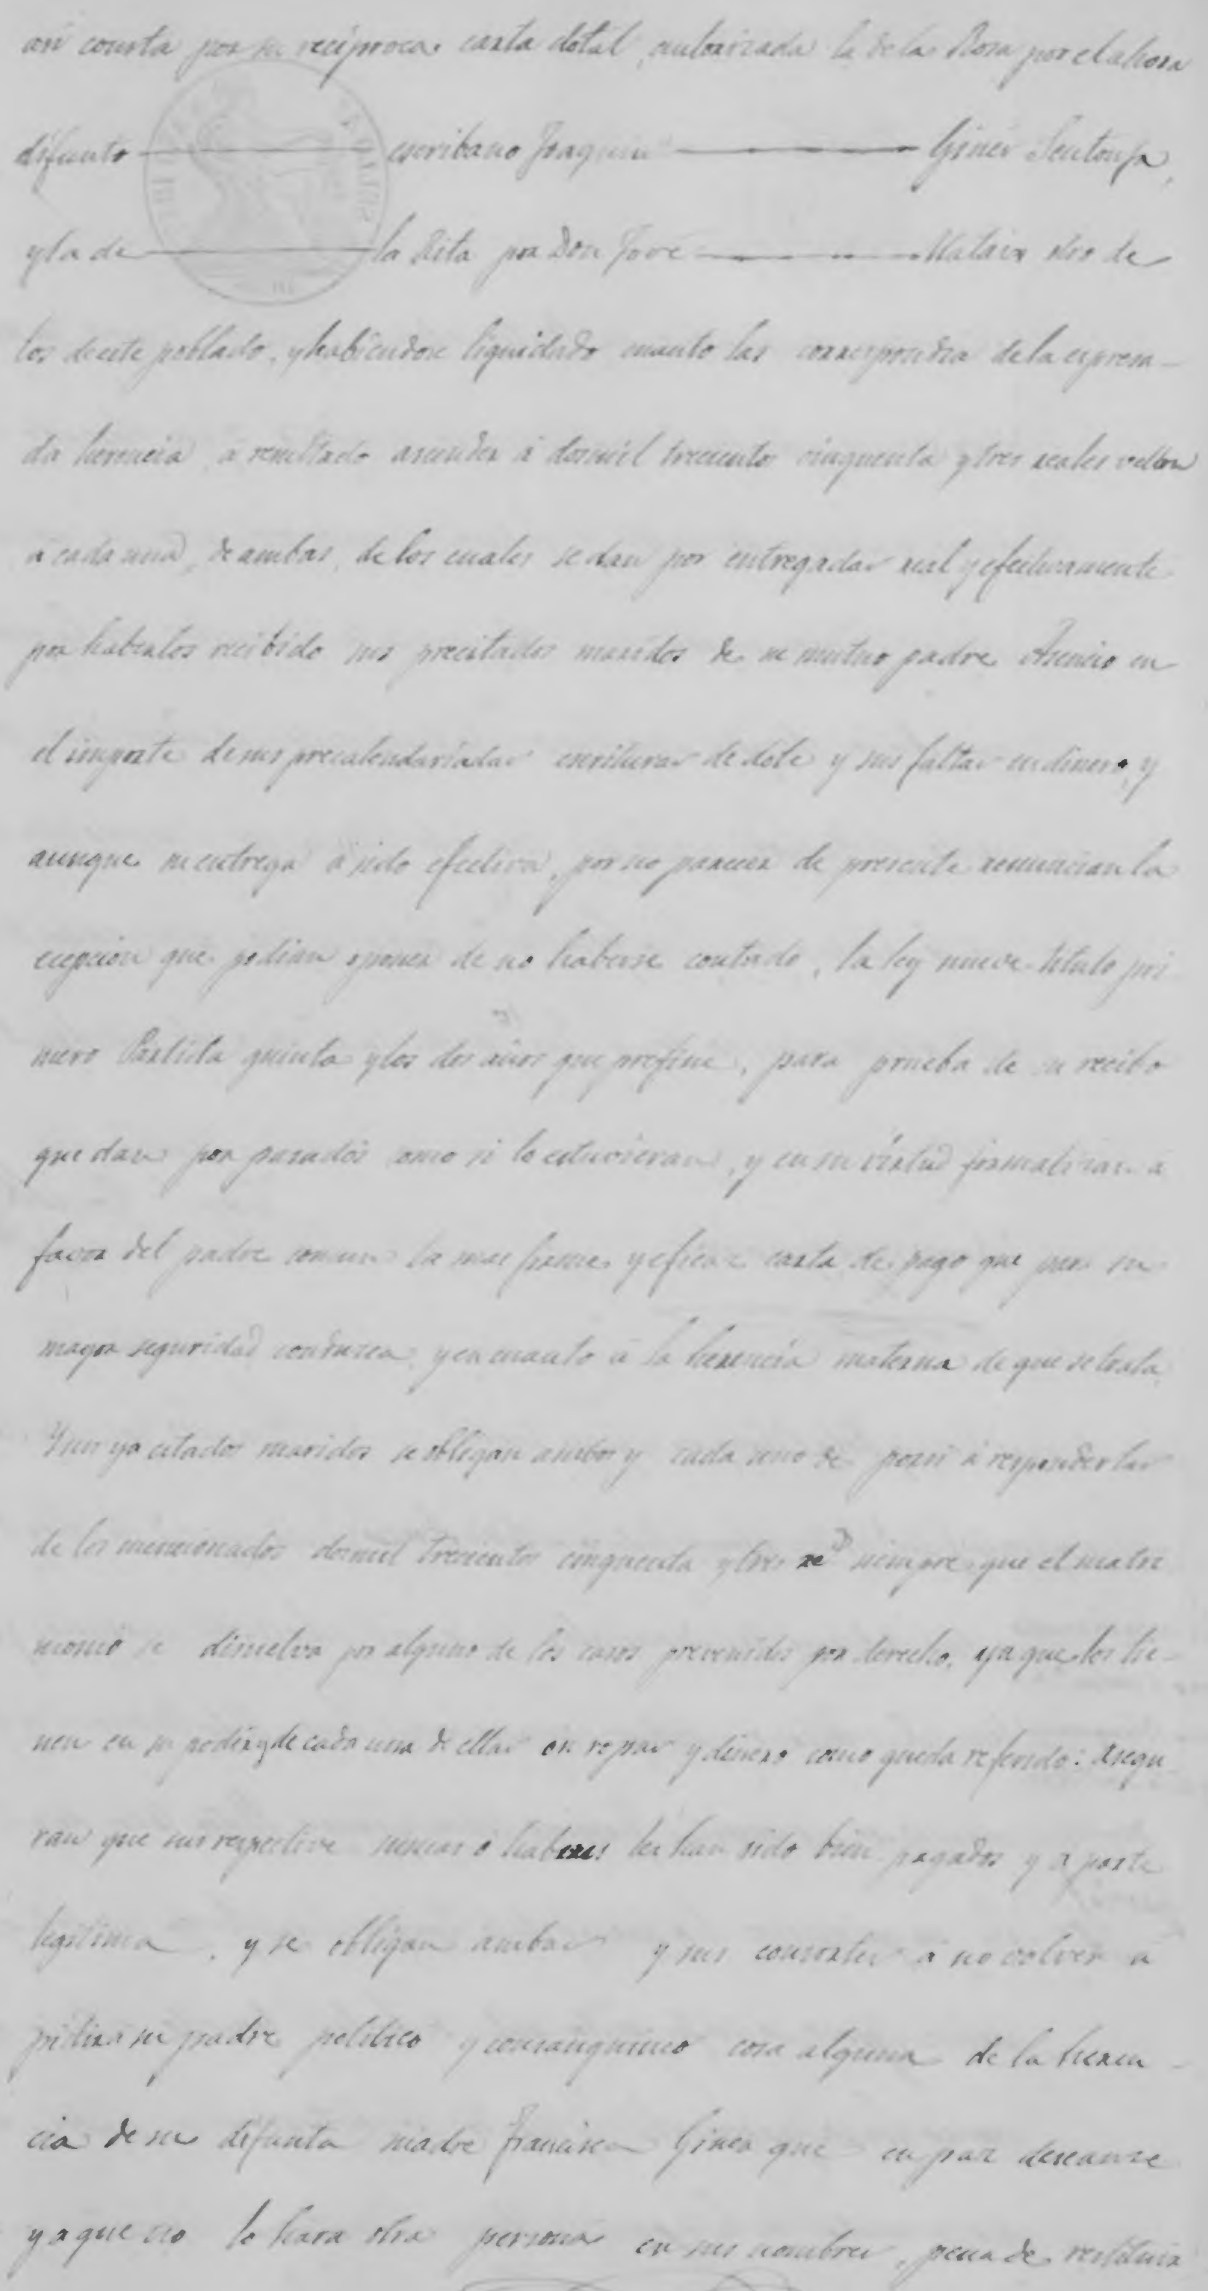 asi consta por su reciproca carta dotal, autorizada la de la Rosa por el ahora
difunto escribano Joaquin Giner Sentonja,
y la de la Rita por Don José Mataix otro de
los de este poblado, y habiendose liquidado cuanto las correspondia de la espresa-
da herencia, a resultado ascender á dosmil trecientos cinquenta y tres reales vellon
á cada una de ambas, de los cuales se dan por entregadas real y efectivamente
por haberlos recibido sus precitados maridos de su mutuo padre Asencio en
el importe de sus precalendariadas escrituras de dote y sus faltas en dinero, y
aunque su entrega á sido efectiva, por no parecer de presente renuncian la
ecepcion que podian oponer de no haberse contado, la ley nueve titulo pri
mero Partida quinta y los dos años que prefine, para prueba de su recibo
que dan por pasados como si lo estuvieran, y en su virtud formalizan á
favor del padre comun la mas firme y eficaz carta de pago que para su
mayor seguridad conduzca, y en cuanto á la herencia materna de que se trata.
Y sus ya citados maridos se obligan ambos y cada uno de porsi á responderlas
de los mencionados dosmil trecientos cinquenta y tres rs siempre que el matri
monio se disuelva por alguno de los casos prevenidos por derecho, ya que los tie-
nen en su poder y de cada una de ellas en ropas y dinero como queda referido: asegu
ran que sus respective sumas ó haberes les han sido bien pagados y a parte
legitima, y se obligan ambas y sus consortes á no volver á
pedir á su padre politico y consanguineo cosa alguna de la heren-
cia de su difunta madre Francisca Giner que en paz descanse
y a que no lo hara otra persona en sus nombres, pena de restituir